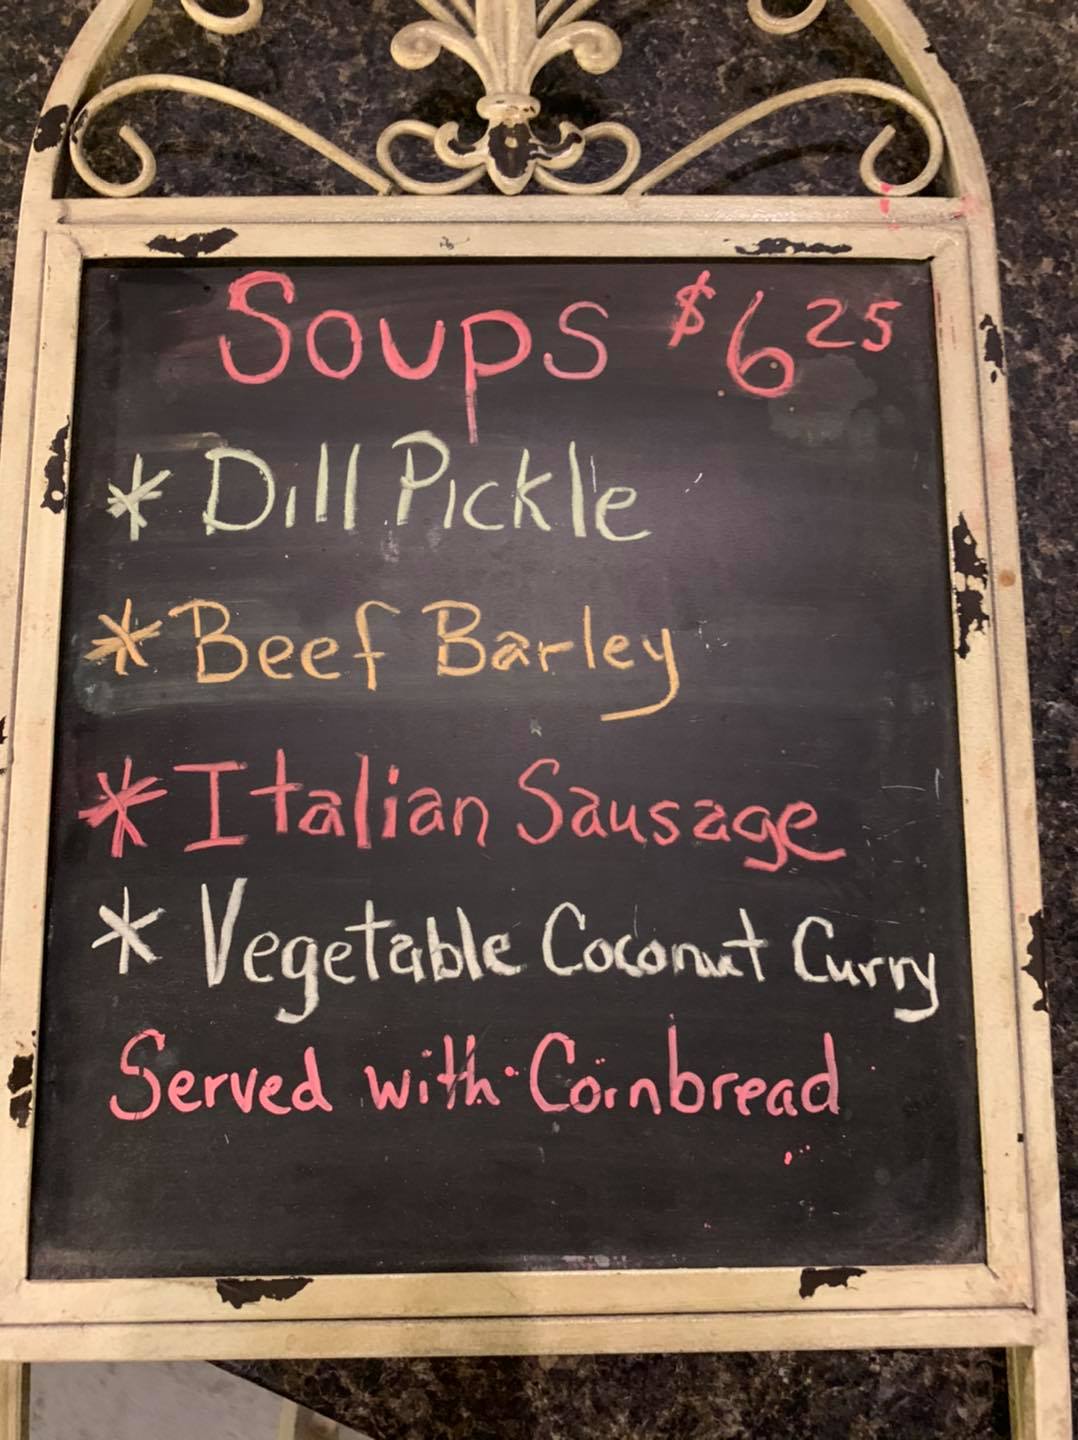 Soups $6 25
* Dill Pickle
* Beef Barley
* Italian Sausage
* Vegetable Coconut Curry
Served with Cornbread